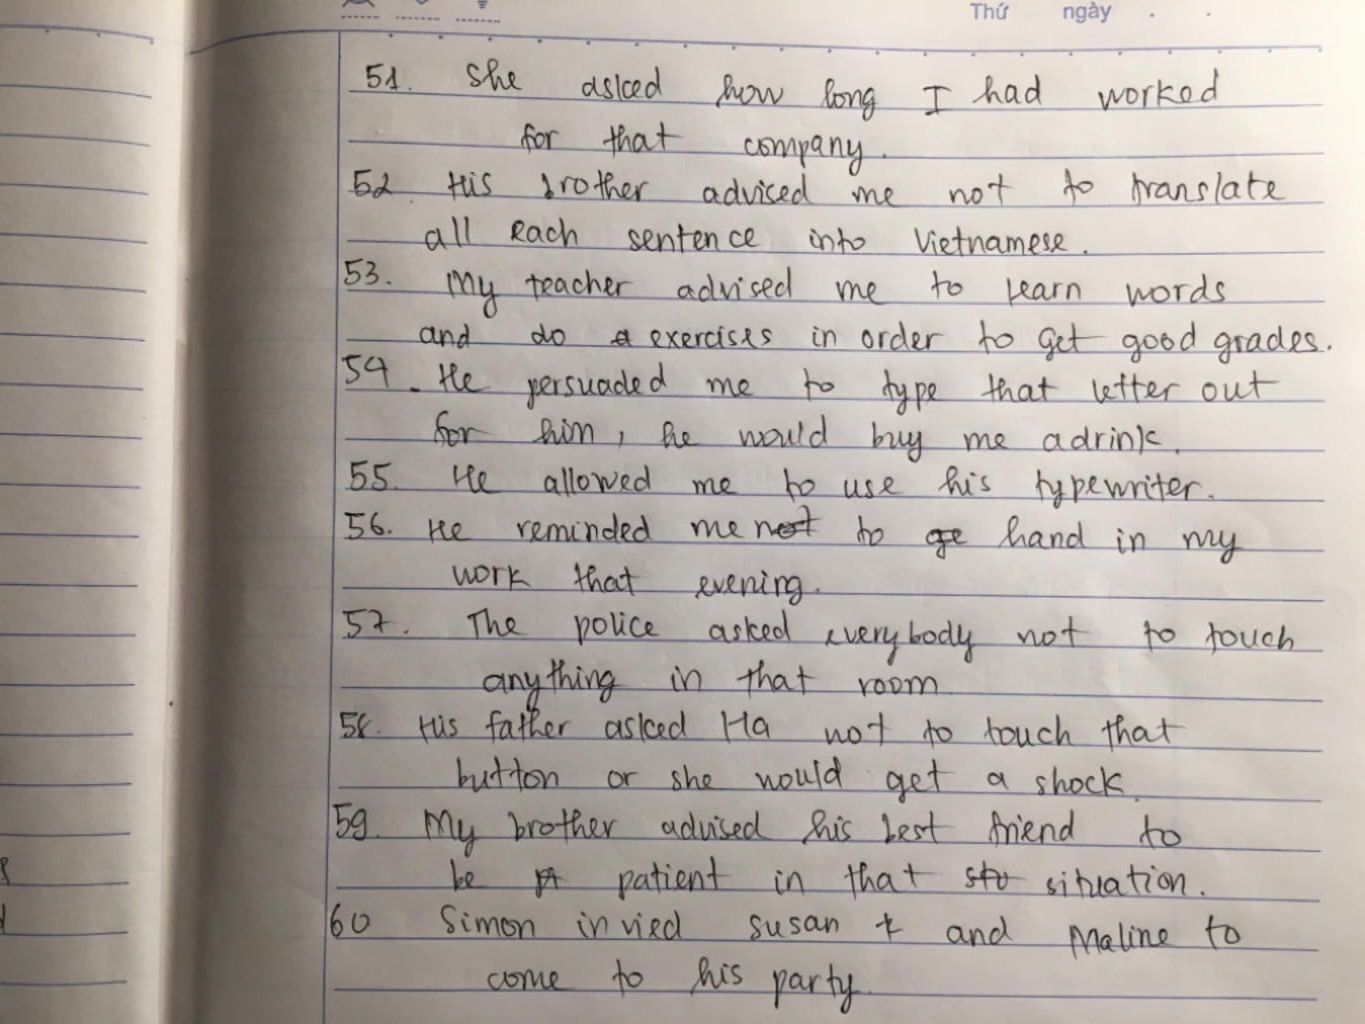 Thứ ngày
51. She asked how long I had worked
for that company.
52 His brother advised me not to translate
all each sentence into Vietnamese.
53. My teacher advised me to learn words
and do exercises in order to get good grades.
54. He persuaded me to type that letter out
for him, he would buy me a drink.
55. He allowed me to use his typewriter.
56. He reminded me not to hand in my
work that evening.
57. The police asked everybody not to touch
anything in that room
58. His father asked Ha not to touch that
button or she would get a shock.
59. My brother advised his best friend to
be patient in that situation.
60 Simon invied Susan and Maline to
come to his party.